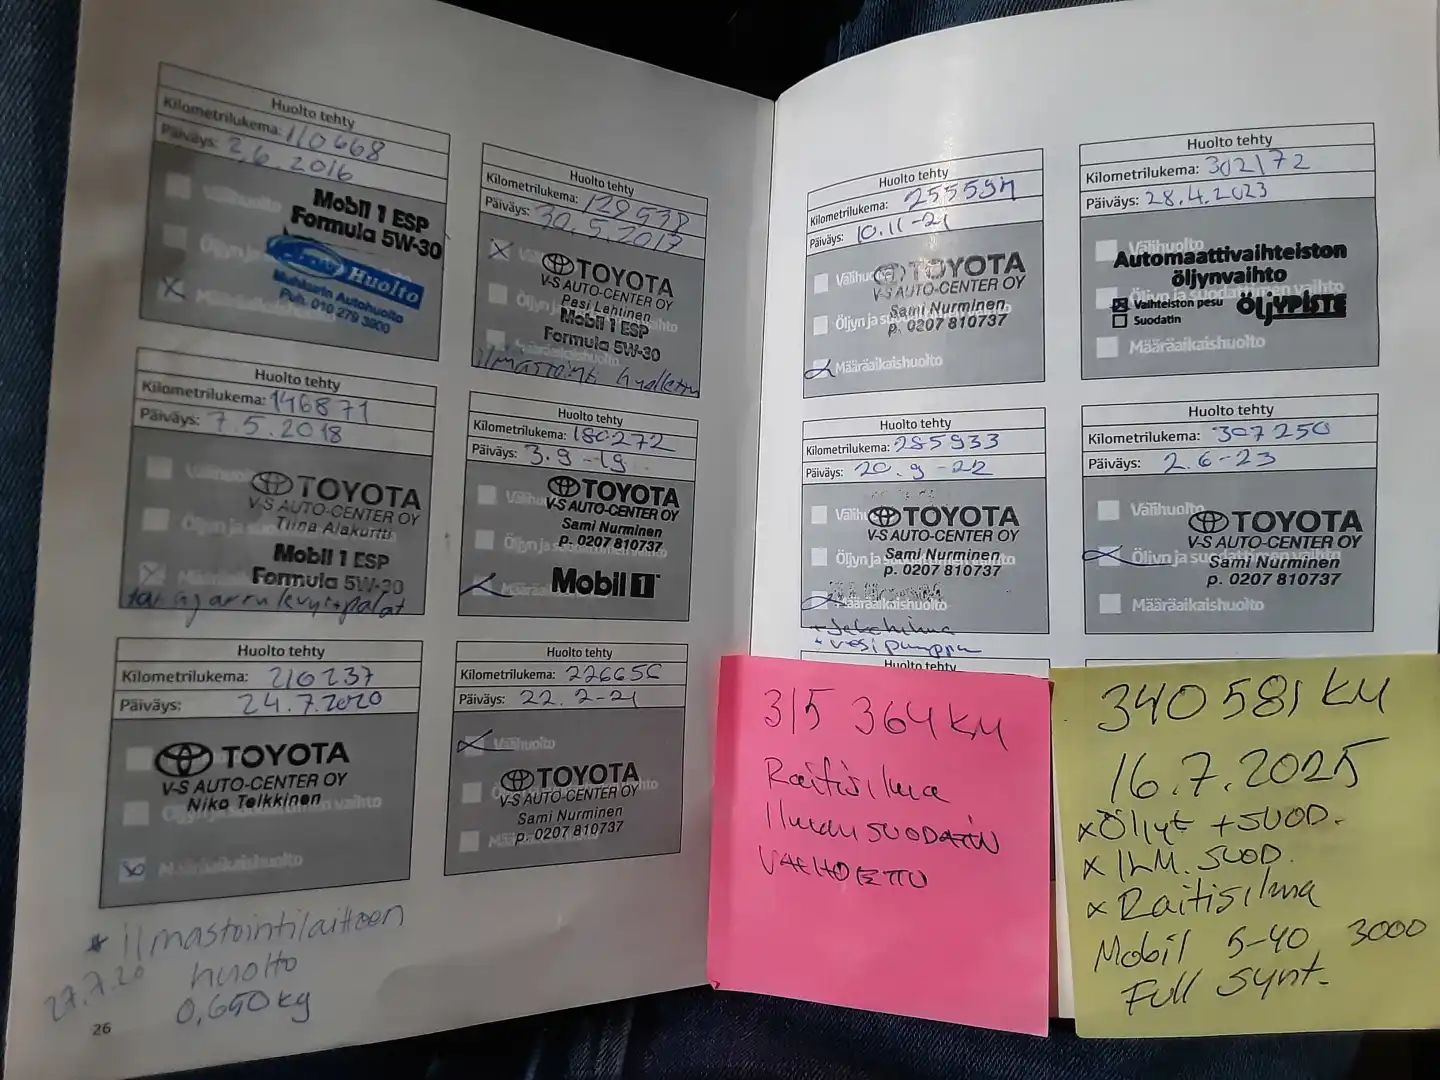 Huolto tehty
Kilometrilukema: 110668
Päiväys: 2.6.2016
Välihuolto
Mobil 1 ESP
Formula 5W-30
Huolto
Autohuolto
Puh. 010 279 3900
Huolto tehty
Kilometrilukema: 129538
Päiväys: 30.5.2017
TOYOTA
V-S AUTO-CENTER OY
Pasi Lehtinen
Mobil 1 ESP
Formula 5W-30
Huolto tehty
Kilometrilukema: 146871
Päiväys: 7.5.2018
Välihuolto
TOYOTA
V-S AUTO-CENTER OY
Tiina Alakurtti
Mobil 1 ESP
Formula 5W-30
Huolto tehty
Kilometrilukema: 180272
Päiväys: 3.9-19
TOYOTA
V-S AUTO-CENTER OY
Sami Nurminen
p. 0207 810737
Mobil 1
Huolto tehty
Kilometrilukema: 210237
Päiväys: 24.7.2020
TOYOTA
V-S AUTO-CENTER OY
Niko Telkkinen
Öljyn ja suodattimen vaihto
Määräaikaishuolto
* ilmastointilaitteen
27.7.20 huolto
0,650kg
26
Huolto tehty
Kilometrilukema: 226656
Päiväys: 22.2-21
Välihuolto
TOYOTA
V-S AUTO-CENTER OY
Sami Nurminen
p. 0207 810737
Huolto tehty
Kilometrilukema: 255594
Päiväys: 10.11-21
Välihuolto
TOYOTA
V-S AUTO-CENTER OY
Sami Nurminen
p. 0207 810737
Määräaikaishuolto
Huolto tehty
Kilometrilukema: 302172
Päiväys: 28.4.2023
Välihuolto
Automaattivaihteiston
öljynvaihto
Öljyn ja suodattimen vaihto
Vaihteiston pesu
Suodatin
ÖLJYPISTE
Määräaikaishuolto
Huolto tehty
Kilometrilukema: 285933
Päiväys: 20.9-22
TOYOTA
V-S AUTO-CENTER OY
Sami Nurminen
p. 0207 810737
Määräaikaishuolto
+ jakohihna
+ vesipumppu
Huolto tehty
Huolto tehty
Kilometrilukema: 307250
Päiväys: 2.6-23
Välihuolto
TOYOTA
V-S AUTO-CENTER OY
Öljyn ja suodattimen vaihto
Sami Nurminen
p. 0207 810737
Määräaikaishuolto
315 364 KM
Raitisilma
Ilman SUODATIN
VAIHDETTU
340 581 KM
16.7.2025
x Öljyt + SUOD.
x ILM. SUOD.
x Raitisilma
Mobil 5-40 3000
Full Synt.